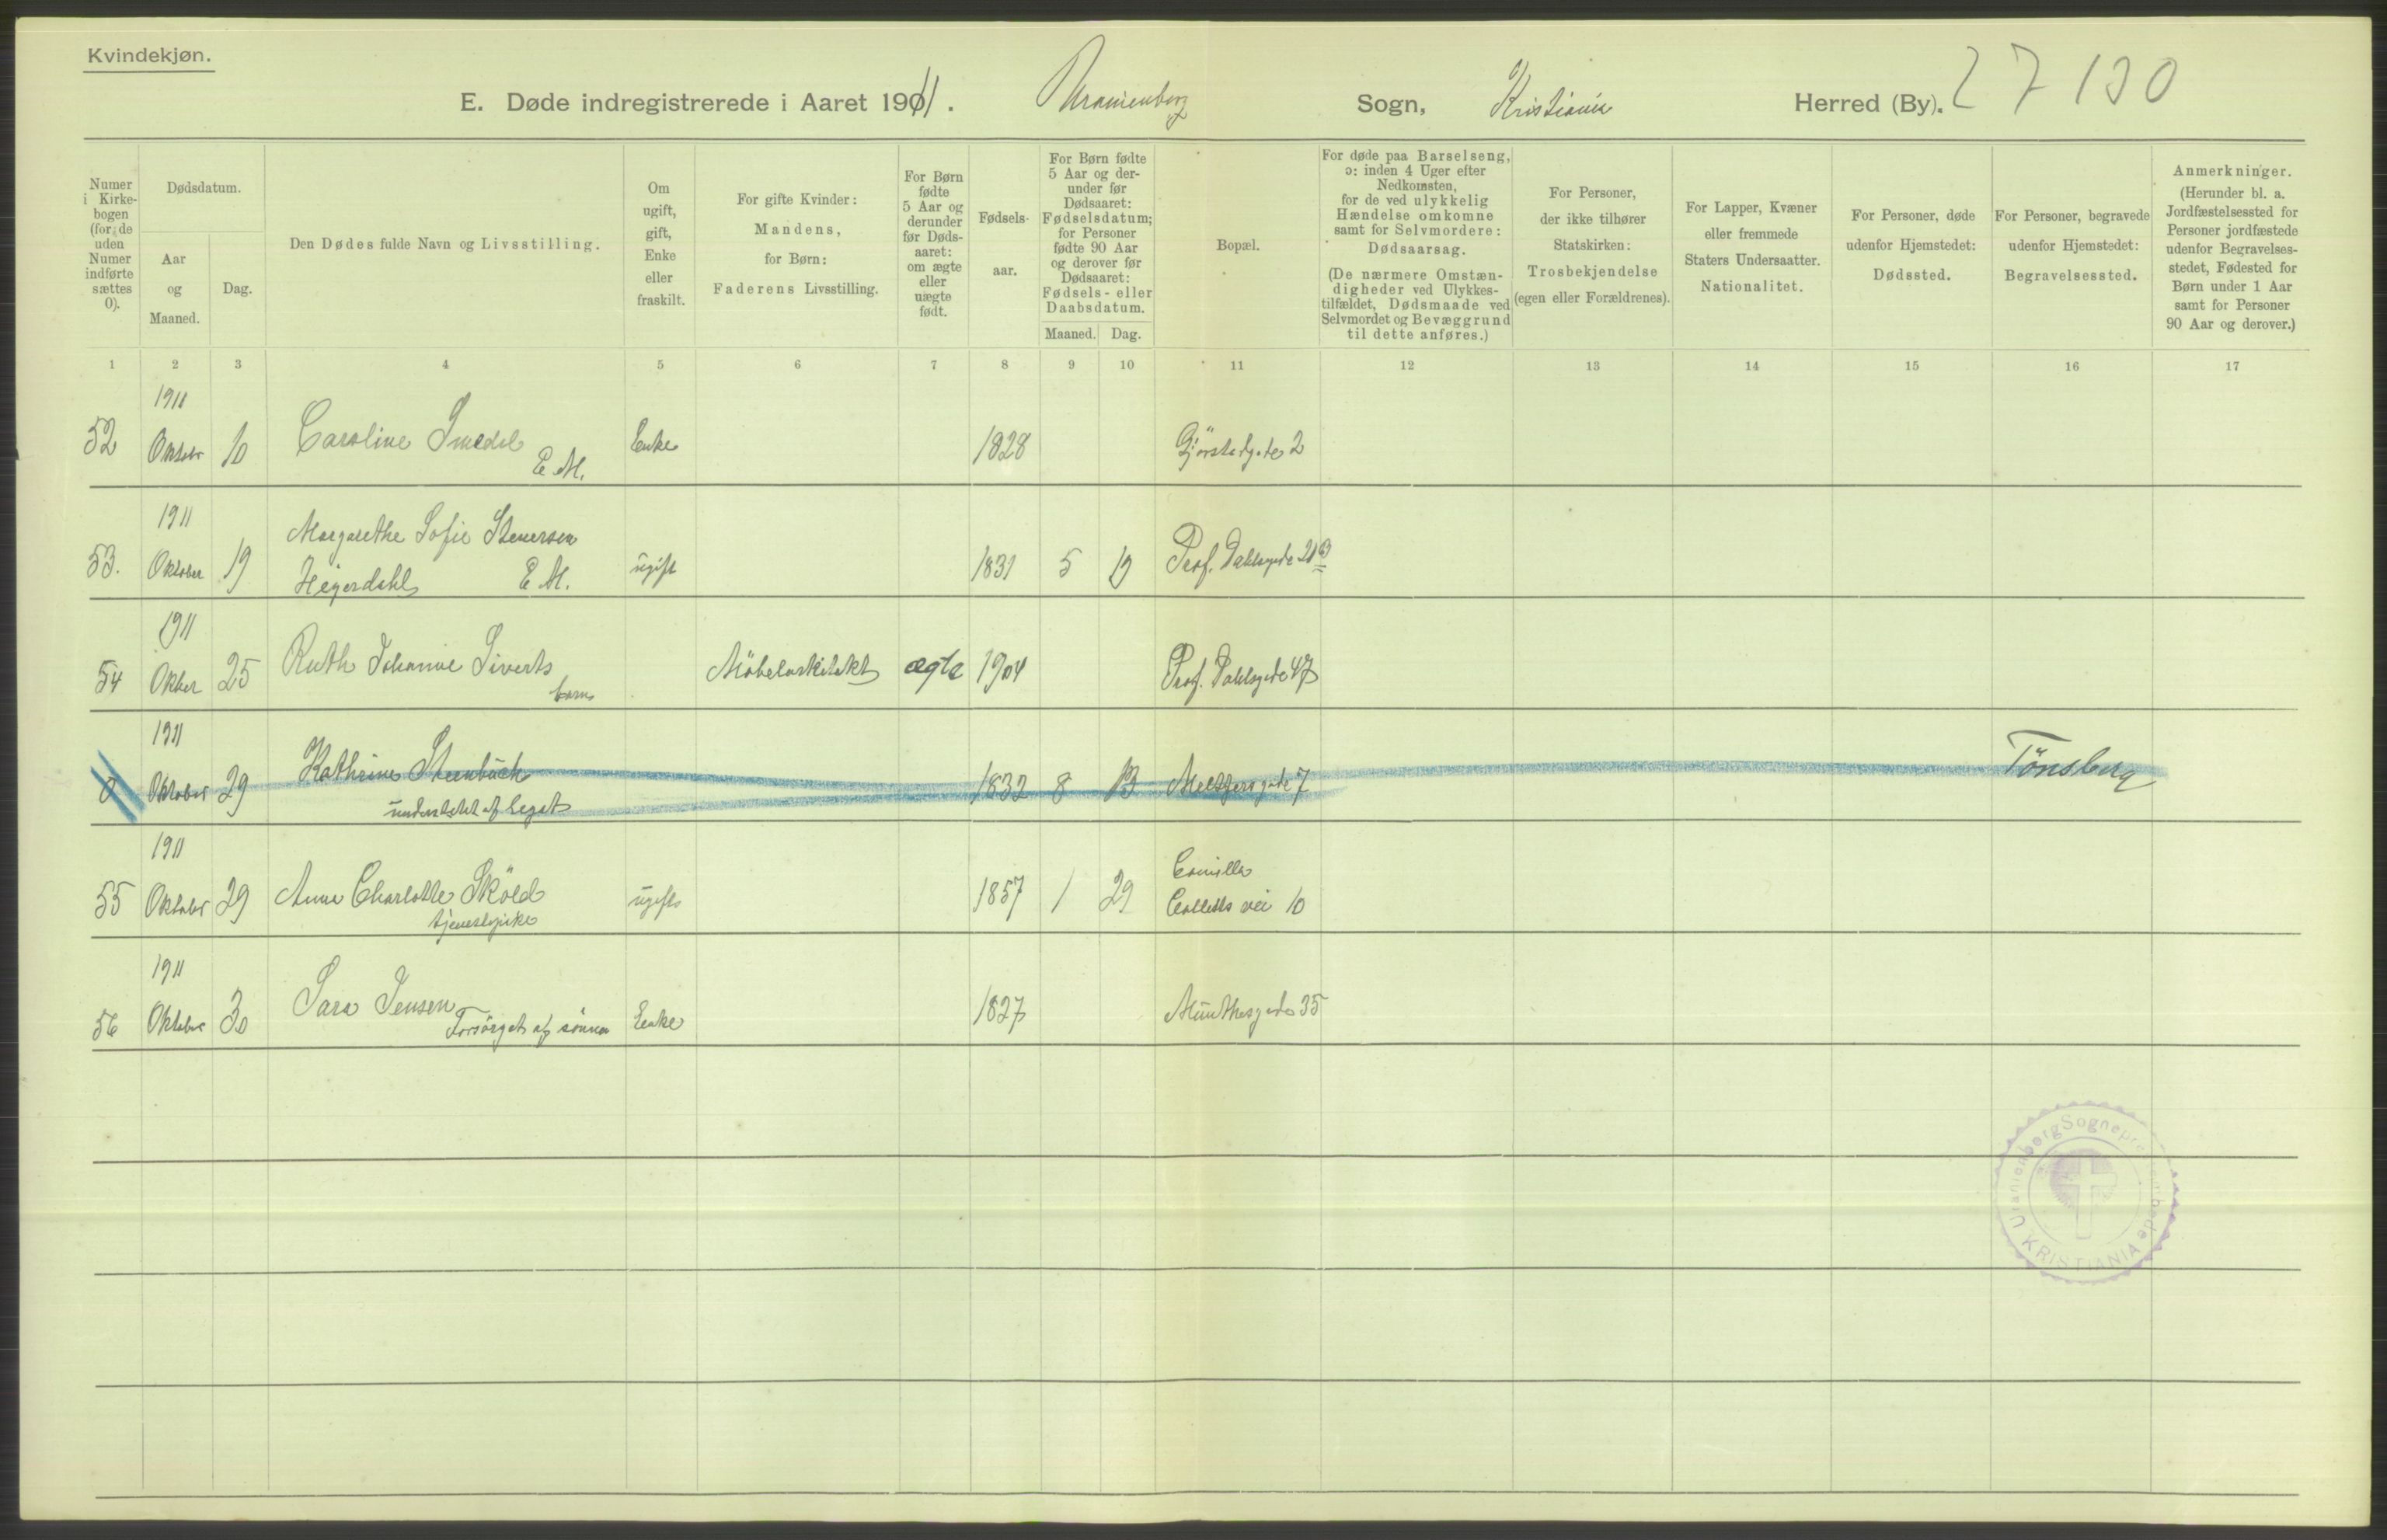 Kvindekjøn.
E. Døde indregistrerede i Aaret 1911. Uranienborg Sogn, Kristiania Herred (By). 27 130
Numer i Kirkebogen (for de uden Numer indførte sættes 0).
Dødsdatum.
Aar og Maaned.
Dag.
Den Dødes fulde Navn og Livsstilling.
Om ugift, gift, Enke eller fraskilt.
For gifte Kvinder: Mandens, for Børn: Faderens Livsstilling.
For Børn fødte 5 Aar og derunder før Dødsaaret: om ægte eller uægte født.
Fødselsaar.
For Børn fødte 5 Aar og derunder før Dødsaaret: Fødselsdatum; for Personer fødte 90 Aar og derover før Dødsaaret: Fødsels- eller Daabsdatum.
Maaned. Dag.
Bopæl.
For døde paa Barselseng, ɔ: inden 4 Uger efter Nedkomsten, for de ved ulykkelig Hændelse omkomne samt for Selvmordere: Dødsaarsag.
(De nærmere Omstændigheder ved Ulykkestilfældet, Dødsmaade ved Selvmordet og Bevæggrund til dette anføres.)
For Personer, der ikke tilhører Statskirken: Trosbekjendelse (egen eller Forældrenes).
For Lapper, Kvæner eller fremmede Staters Undersaatter. Nationalitet.
For Personer, døde udenfor Hjemstedet: Dødssted.
For Personer, begravede udenfor Hjemstedet: Begravelsessted.
Anmerkninger. (Herunder bl. a. Jordfæstelsessted for Personer jordfæstede udenfor Begravelsesstedet, Fødested for Børn under 1 Aar samt for Personer 90 Aar og derover.)
1 2 3 4 5 6 7 8 9 10 11 12 13 14 15 16 17
1911
52 Oktober 10 Caroline Smedal Enke 1828 Gjörstadgate 2
E. M.
1911
53. Oktober 19 Margarethe Sofie Stenersen
Heyerdahl E. M. ugift 1831 5 19 Prof. Dahlsgade 21 B
1911
54 Oktber 25 Ruth Johanne Siverts Möbelarkitekt ægte 1904 Prof. Dahlsgade 47
barn
1911
0 Oktober 29 Kathrine Steenbuch 1832 8 13 Meltzersgade 7 Tönsberg
understöttet af legat
1911
55 Oktober 29 Anna Charlotte Sköld ugift 1857 1 29 Camilla
Colletts vei 10
tjenestepike
1911
56 Oktober 30 Sara Jensen Enke 1827 Munthesgade 35
Forsörget af sönnen
Uranienborg Sogneprestembede
KRISTIANIA